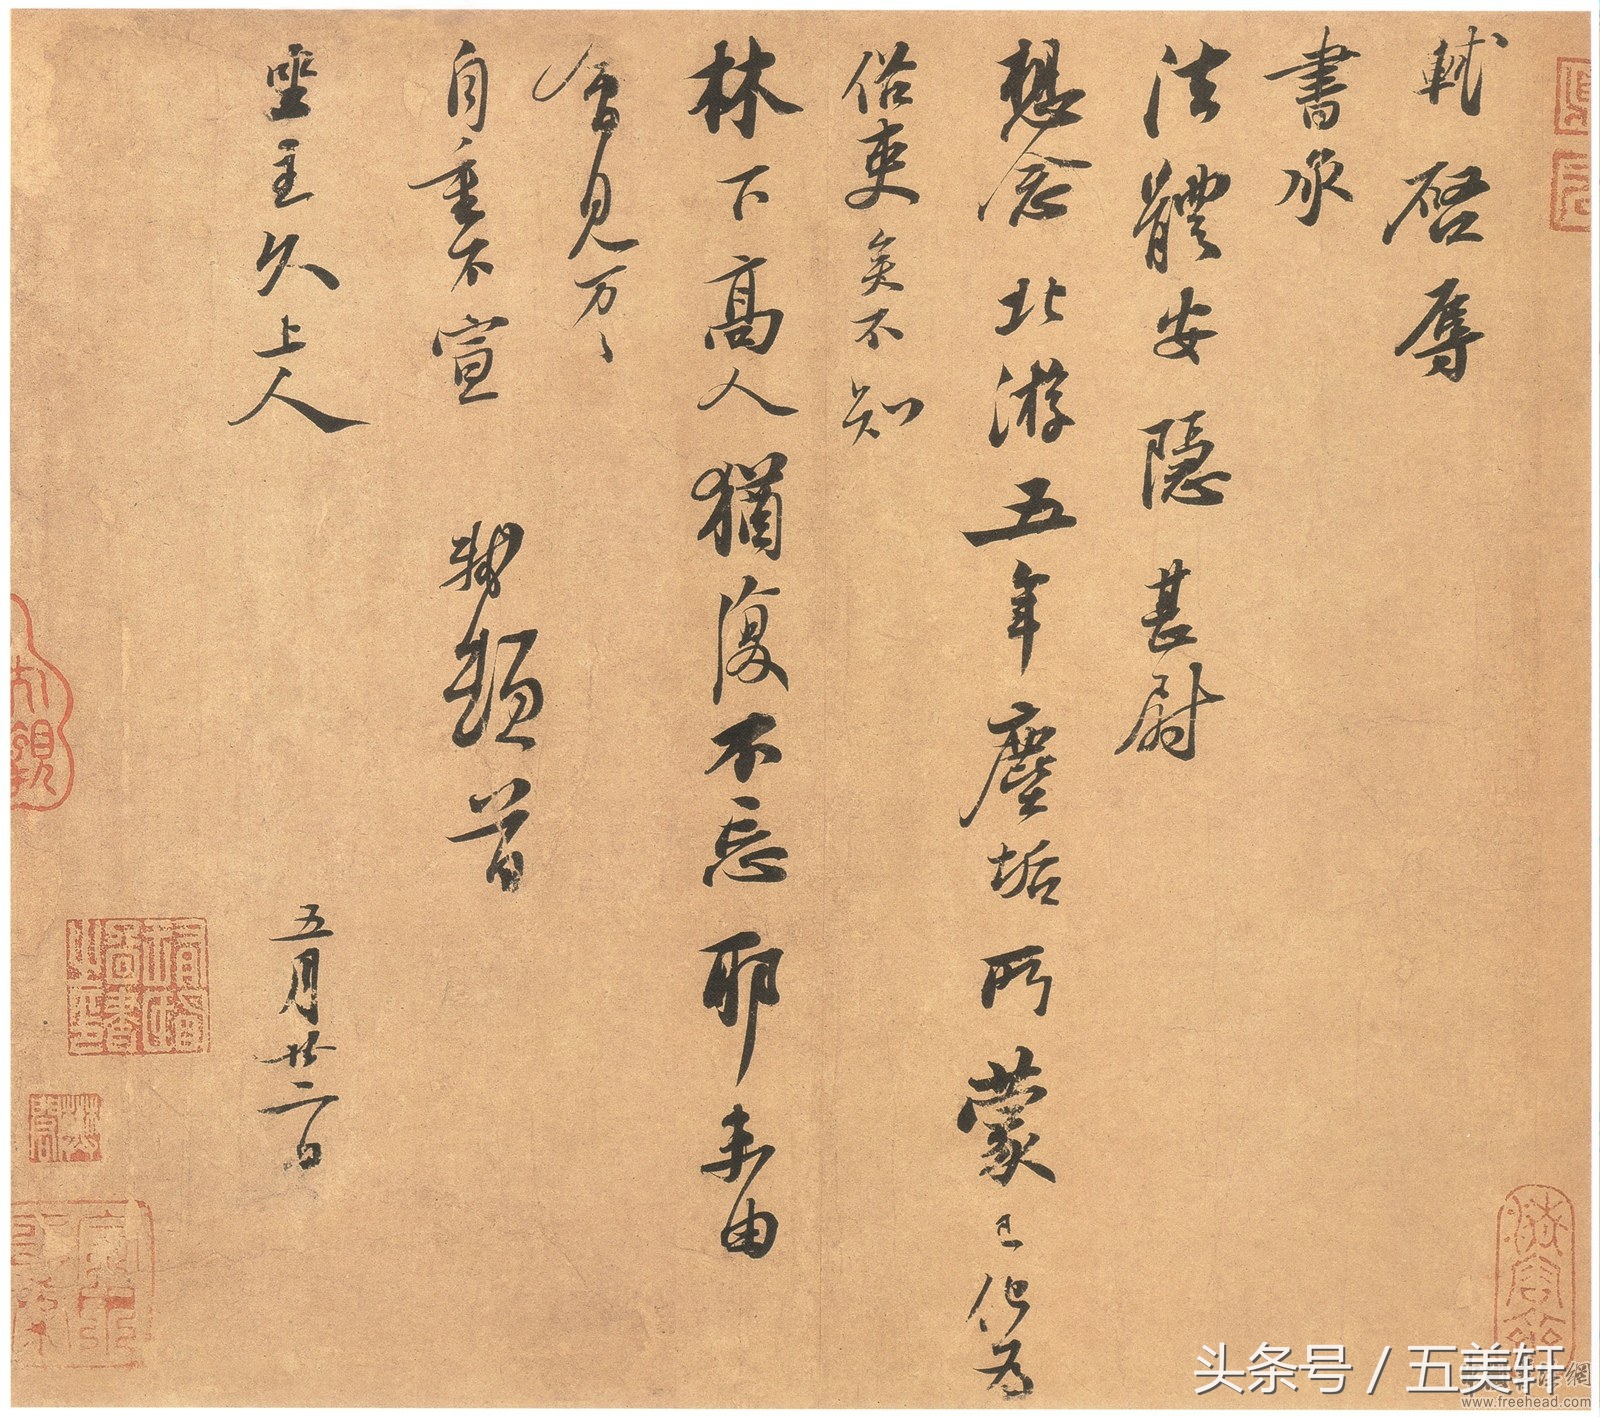 軾啓辱
書承
法體安隱甚尉
想念北游五年塵垢所蒙已化為
俗吏矣不知
林下高人猶復不忘耶未由
會見万〻
自重不宣 軾頓首
坐主久上人 五月廿二日
头条号 / 五美轩
www.freehead.com